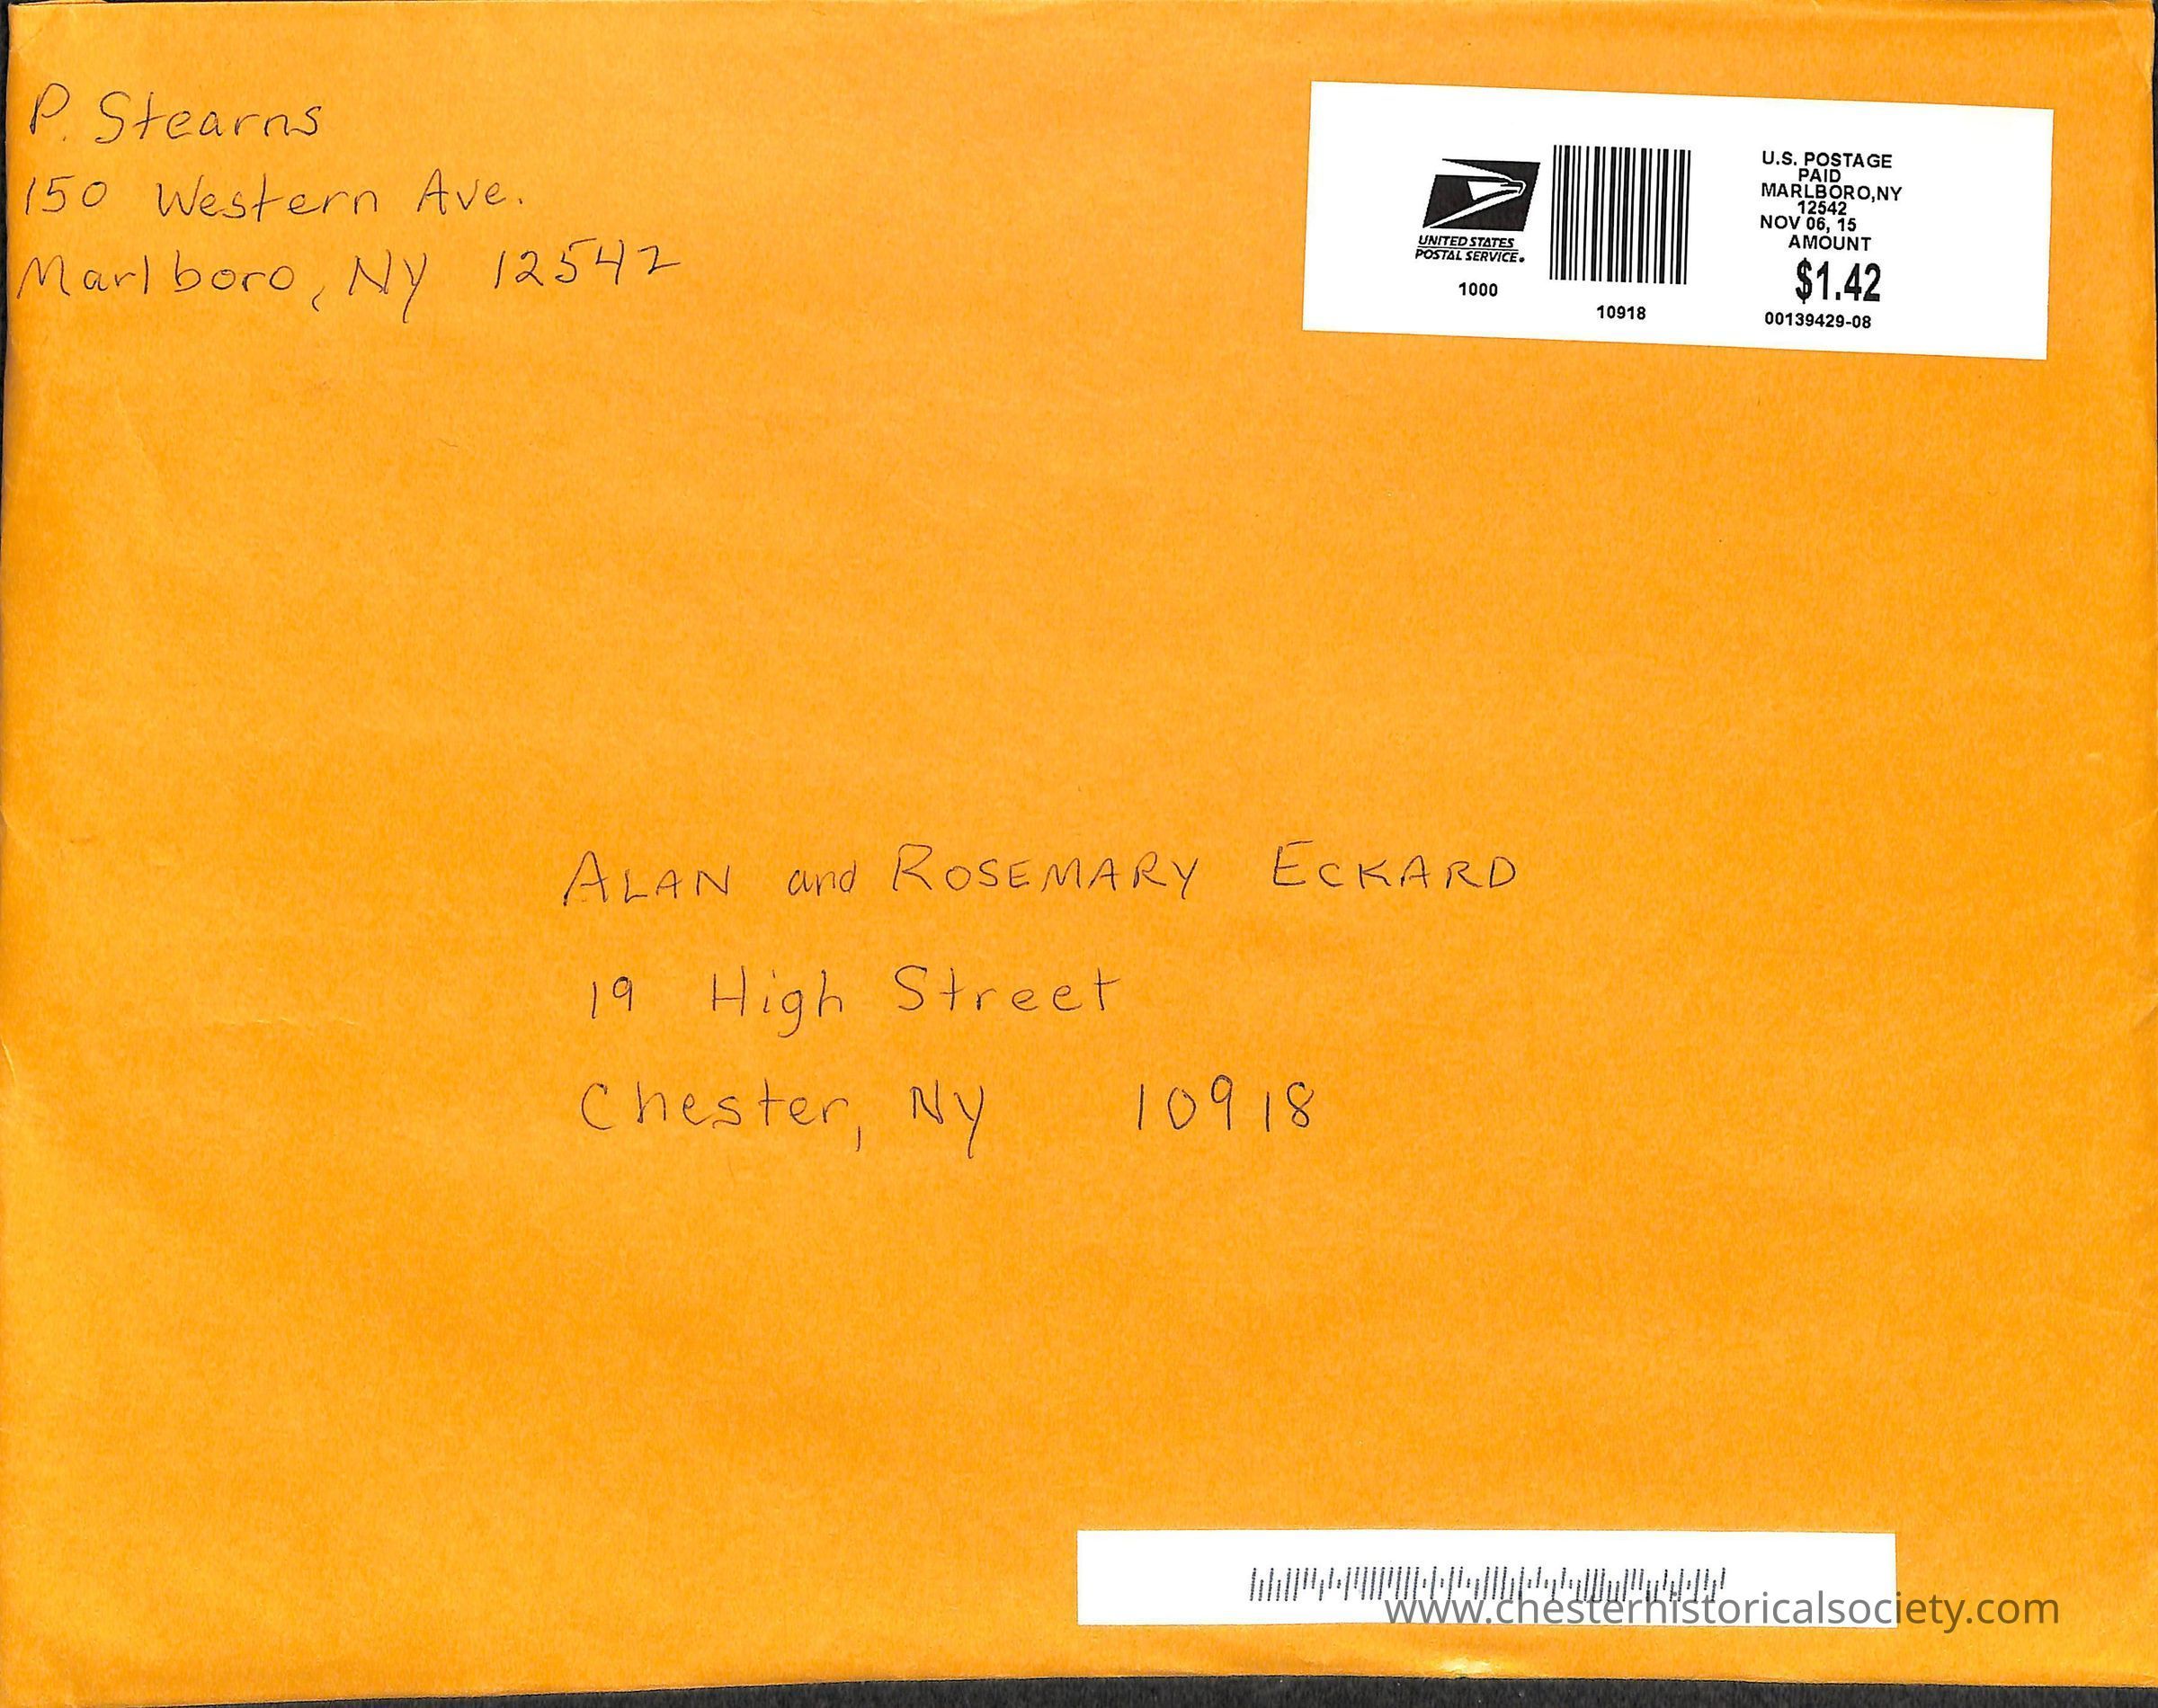 P. Stearns
150 Western Ave.
Marlboro, NY 12542
U.S. POSTAGE
PAID
MARLBORO,NY
12542
NOV 06, 15
AMOUNT
$1.42
00139429-08
UNITED STATES
POSTAL SERVICE.
1000
10918
ALAN and ROSEMARY ECKARD
19 High Street
Chester, NY 10918
www.chesterhistoricalsociety.com